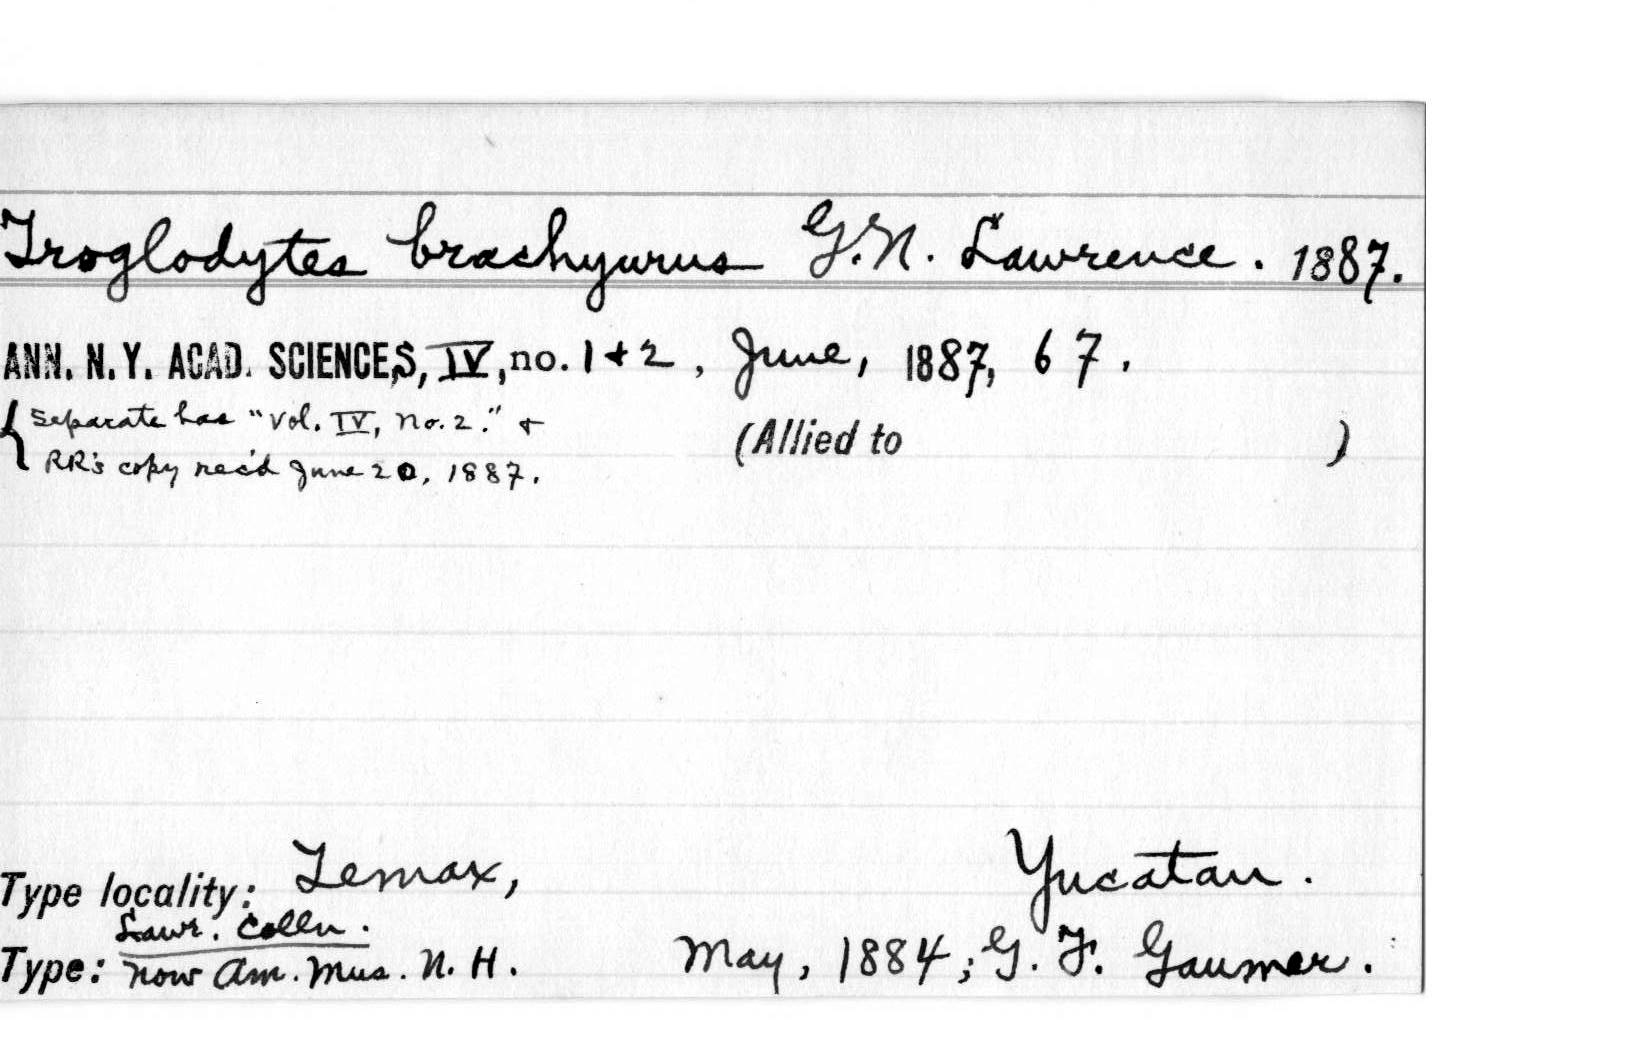 Troglodytes brachyurus G.N. Lawrence. 1887.
ANN. N. Y. ACAD. SCIENCES, IV, no. 1 + 2, June, 1887, 67.
{ Separate has "Vol. IV, No. 2." +
RR's copy rec'd June 20, 1887.
(Allied to )
Type locality: Temax, Yucatan.
Lawr. Colln.
Type: now Am. Mus. N. H. May, 1884; G. F. Gaumer.